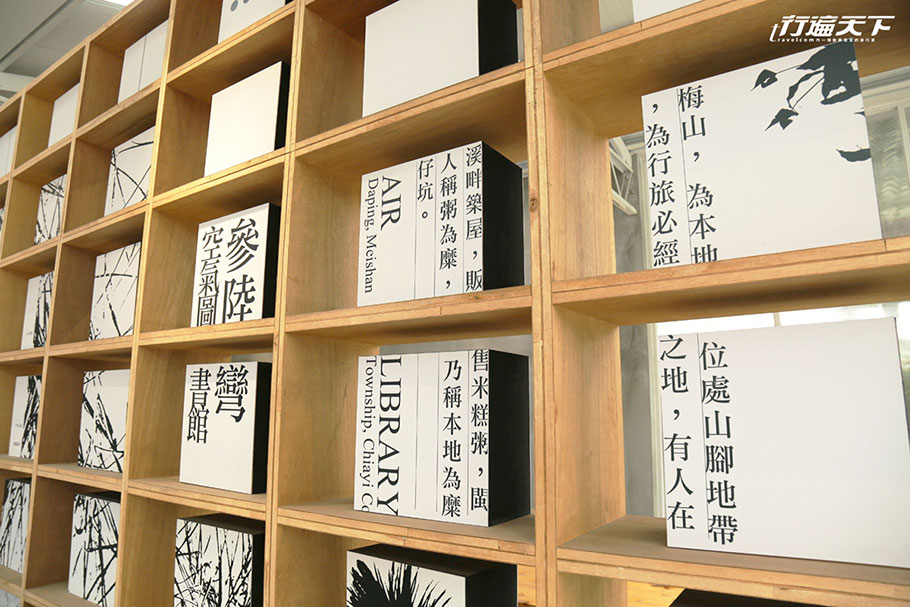 行遍天下
梅山，為本地位處山腳地帶
，為行旅必經之地，有人在
溪畔築屋，販售米糕粥，閩
人稱粥為糜，乃稱本地為糜
仔坑。
AIR LIBRARY
Daping, Meishan Township, Chiayi Co
參陸彎
空氣圖書館